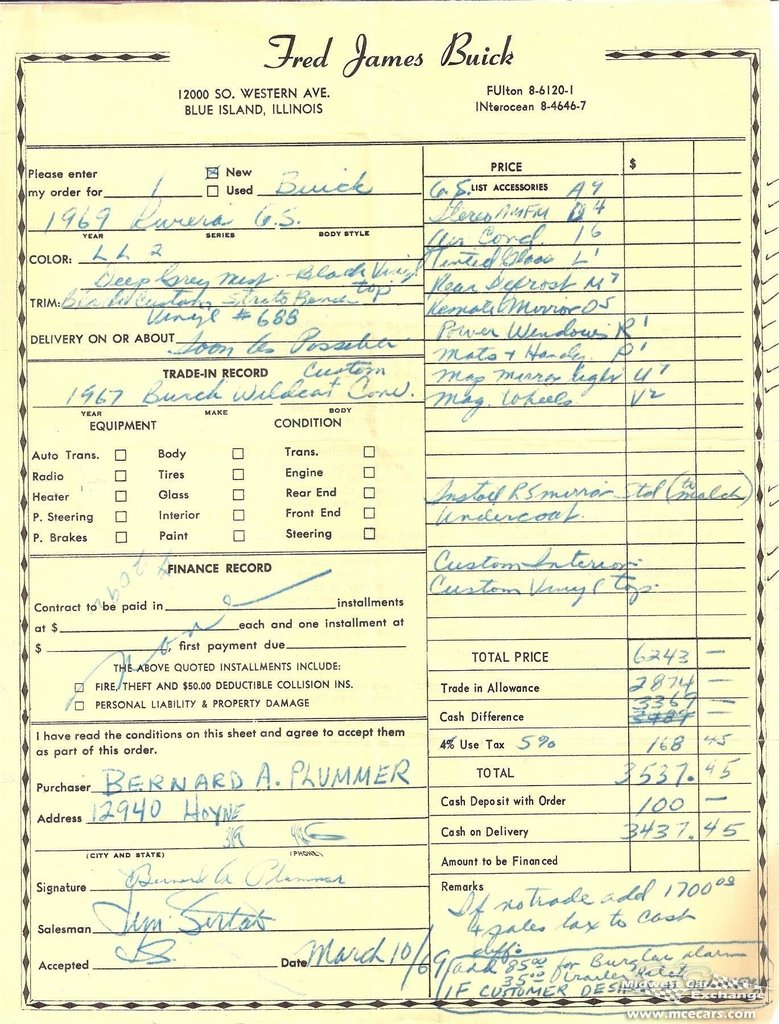 Fred James Buick
12000 SO. WESTERN AVE.
BLUE ISLAND, ILLINOIS
FUlton 8-6120-1
INterocean 8-4646-7
Please enter
my order for 1
☒ New
☐ Used Buick
1969 Rivera G.S.
YEAR SERIES BODY STYLE
COLOR: L L 2
Deep Grey Mist - Black Vinyl top
TRIM: Black Custom Strato Bench
Vinyl # 688
DELIVERY ON OR ABOUT Soon As Possible
TRADE-IN RECORD Custom
1967 Buick Wildcat Conv.
YEAR MAKE BODY
EQUIPMENT CONDITION
Auto Trans. ☐ Body ☐ Trans. ☐
Radio ☐ Tires ☐ Engine ☐
Heater ☐ Glass ☐ Rear End ☐
P. Steering ☐ Interior ☐ Front End ☐
P. Brakes ☐ Paint ☐ Steering ☐
FINANCE RECORD
Contract to be paid in installments
at $ each and one installment at
$ , first payment due
THE ABOVE QUOTED INSTALLMENTS INCLUDE:
☐ FIRE, THEFT AND $50.00 DEDUCTIBLE COLLISION INS.
☐ PERSONAL LIABILITY & PROPERTY DAMAGE
I have read the conditions on this sheet and agree to accept them
as part of this order.
Purchaser BERNARD A. PLUMMER
Address 12940 HOYNE
(CITY AND STATE) (PHONE)
Signature Bernard A Plummer
Salesman Jim
Accepted
Date March 10/69
PRICE $
G.S. LIST ACCESSORIES A9
Stereo AM FM
Air Cond 16
Tinted Glass L1
Rear Defrost M7
Remote Mirror O5
Power Windows R1
Mats + Handy P1
Map Mirror light U7
Mag. Wheels V2
Install RS mirror Std (to match)
Undercoat
Custom Interior
Custom Vinyl top
TOTAL PRICE 6243 —
Trade in Allowance 2874 —
3369
Cash Difference —
4% Use Tax 5% 168 45
TOTAL 3537.45
Cash Deposit with Order 100 —
Cash on Delivery 3437.45
Amount to be Financed
Remarks
If no trade add 1700 00
+ sales tax to cash
diff.
add 85 00 for Burglar alarm
35 00
IF CUSTOMER
Midwest Car
Exchange
www.mcecars.com